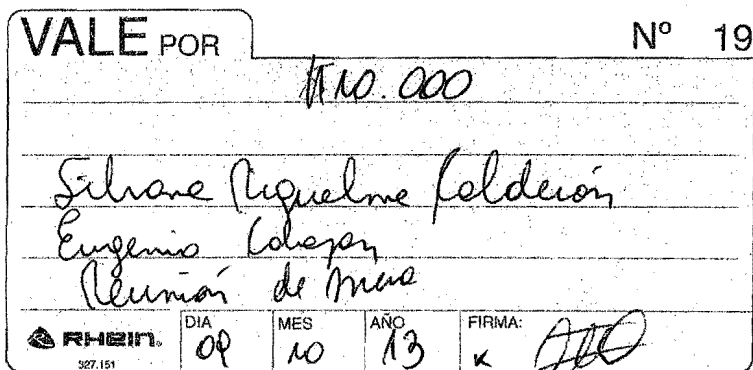 VALE POR Nº 19
10.000
Silvana Riquelme Calderón
Eugenio
Reunión de
RHEIN.
327.151
DIA 09 MES 10 AÑO 13 FIRMA: